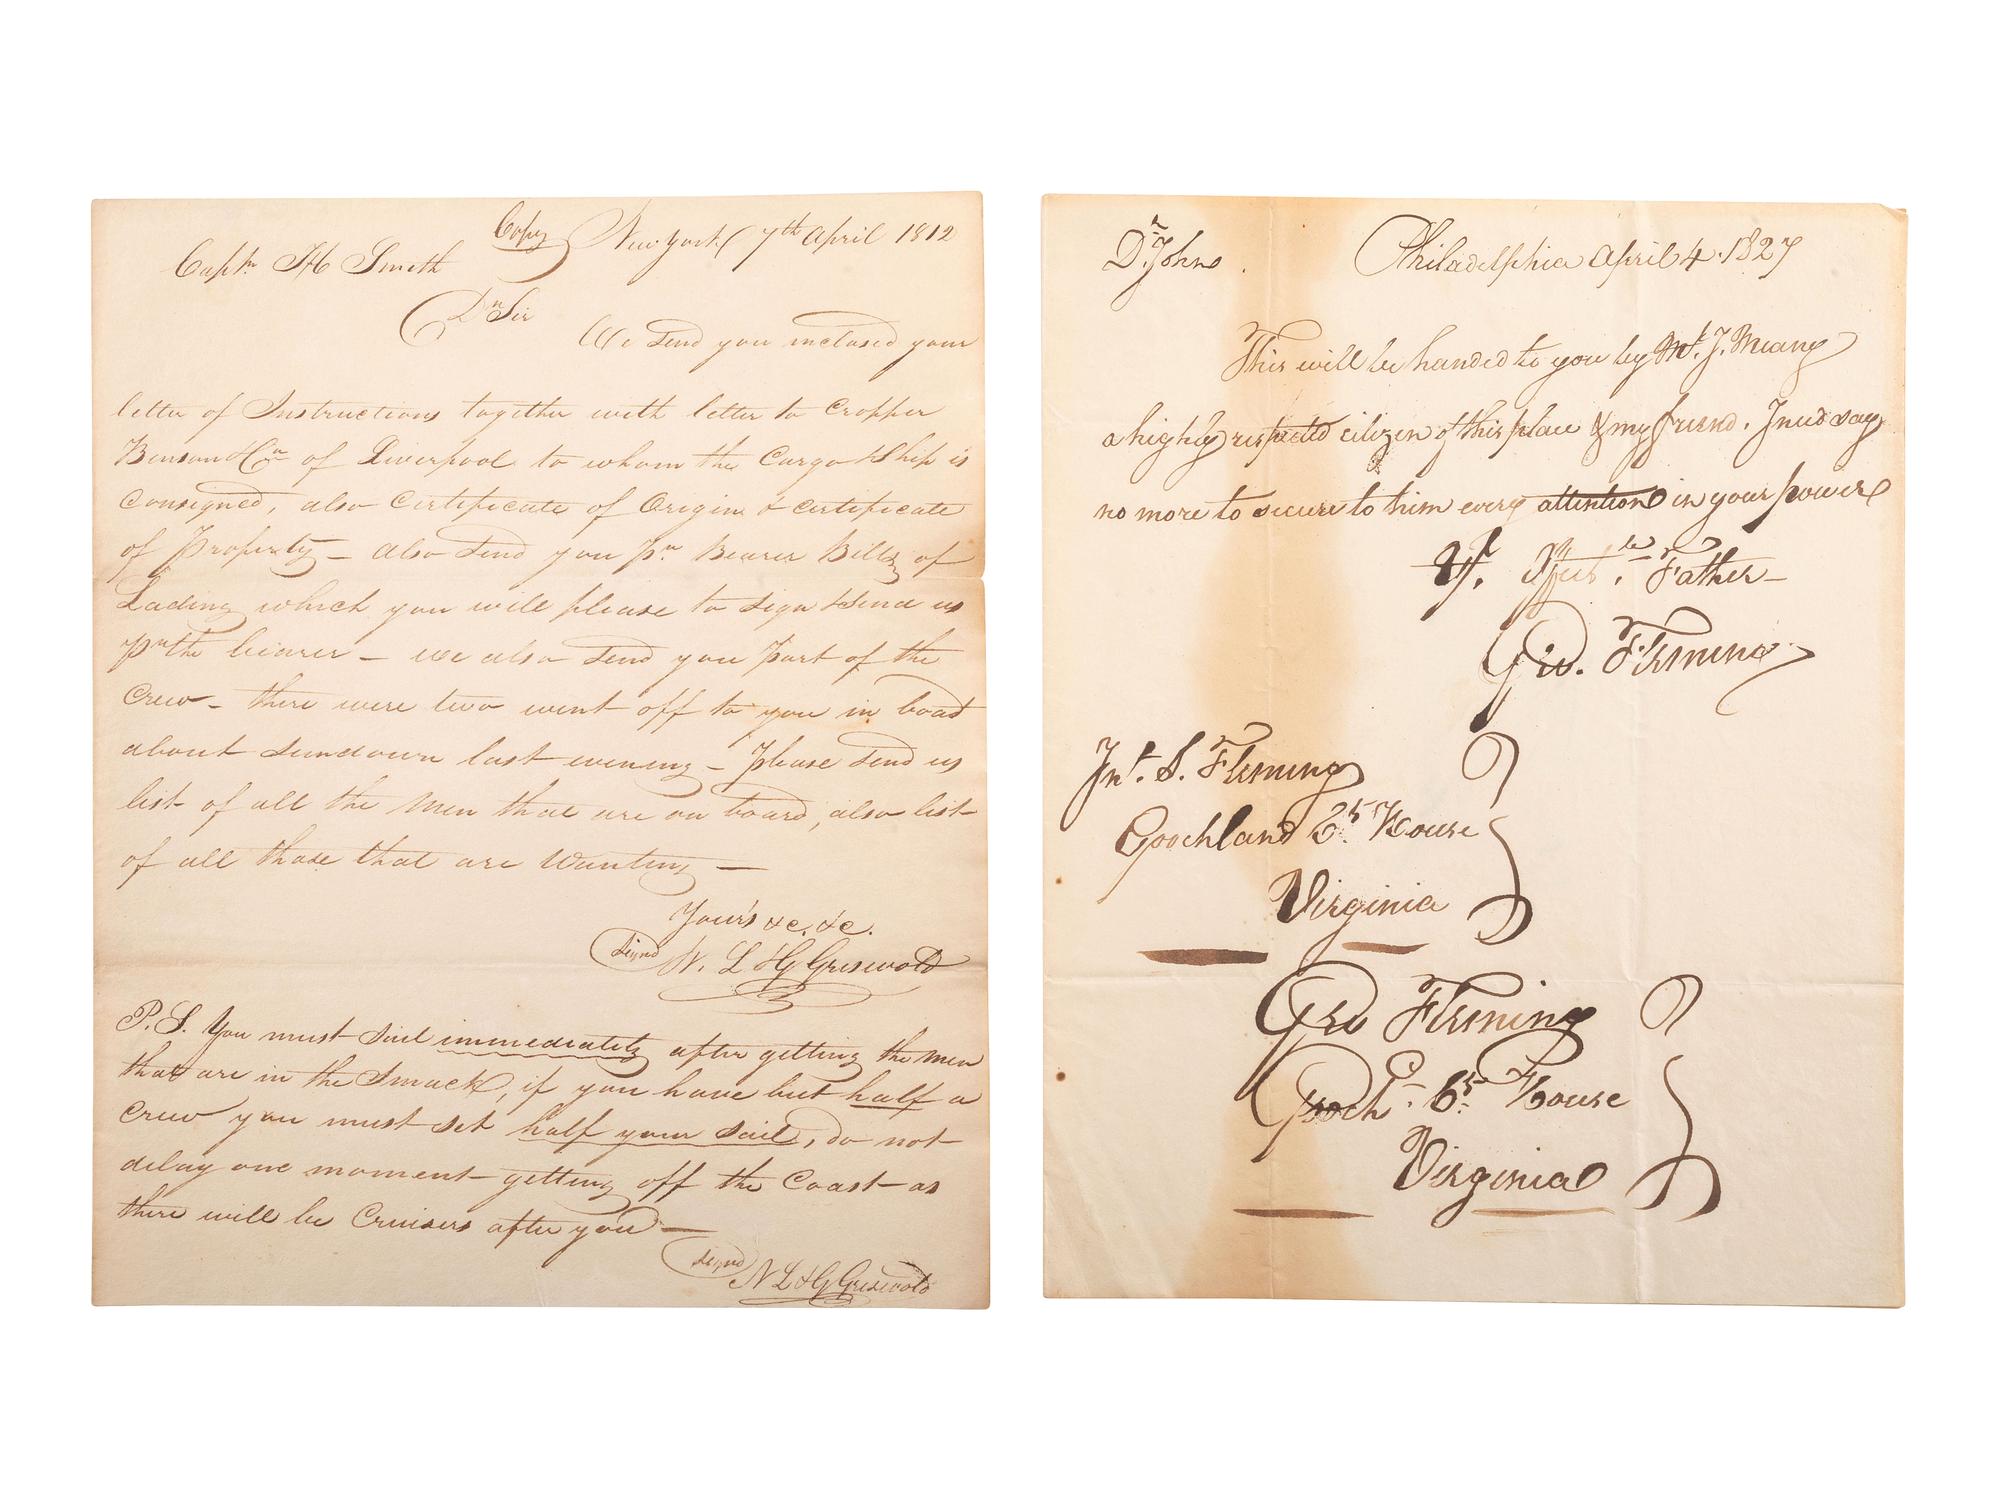 Copy New York 7th April 1812
Captn H Smith
Dr Sir
We send you inclosed your
letter of Instructions together with letter to Cropper
Benson & Co of Liverpool to whom the Cargo & Ship is
Consigned, also Certificate of Origin & certificate
of Property — also send you pr Bearer Bills of
Lading which you will please to sign & send us
pr the bearer — we also send you part of the
Crew — there were two went off to you in boat
about sundown last evening — Please send us
list of all the men that are on board, also list
of all those that are Wanting —
Your's &c. &c.
Signd N. L & G Griswold
P.S. You must sail immediately after getting the men
that are in the Smack, if you have but half a
Crew you must set half your sail, do not
delay one moment getting off the Coast as
there will be Cruisers after you —
Signd N L & G Griswold
Dr John Philadelphia April 4. 1827
This will be handed to you by Mr. J.
a highly respected citizen of this place & my friend. I need say
no more to secure to him every attention in your power
Father
Geo. Fleming
Jno. S. Fleming
Goochland Ct House
Virginia
Geo Fleming
Gooch. Ct House
Virginia